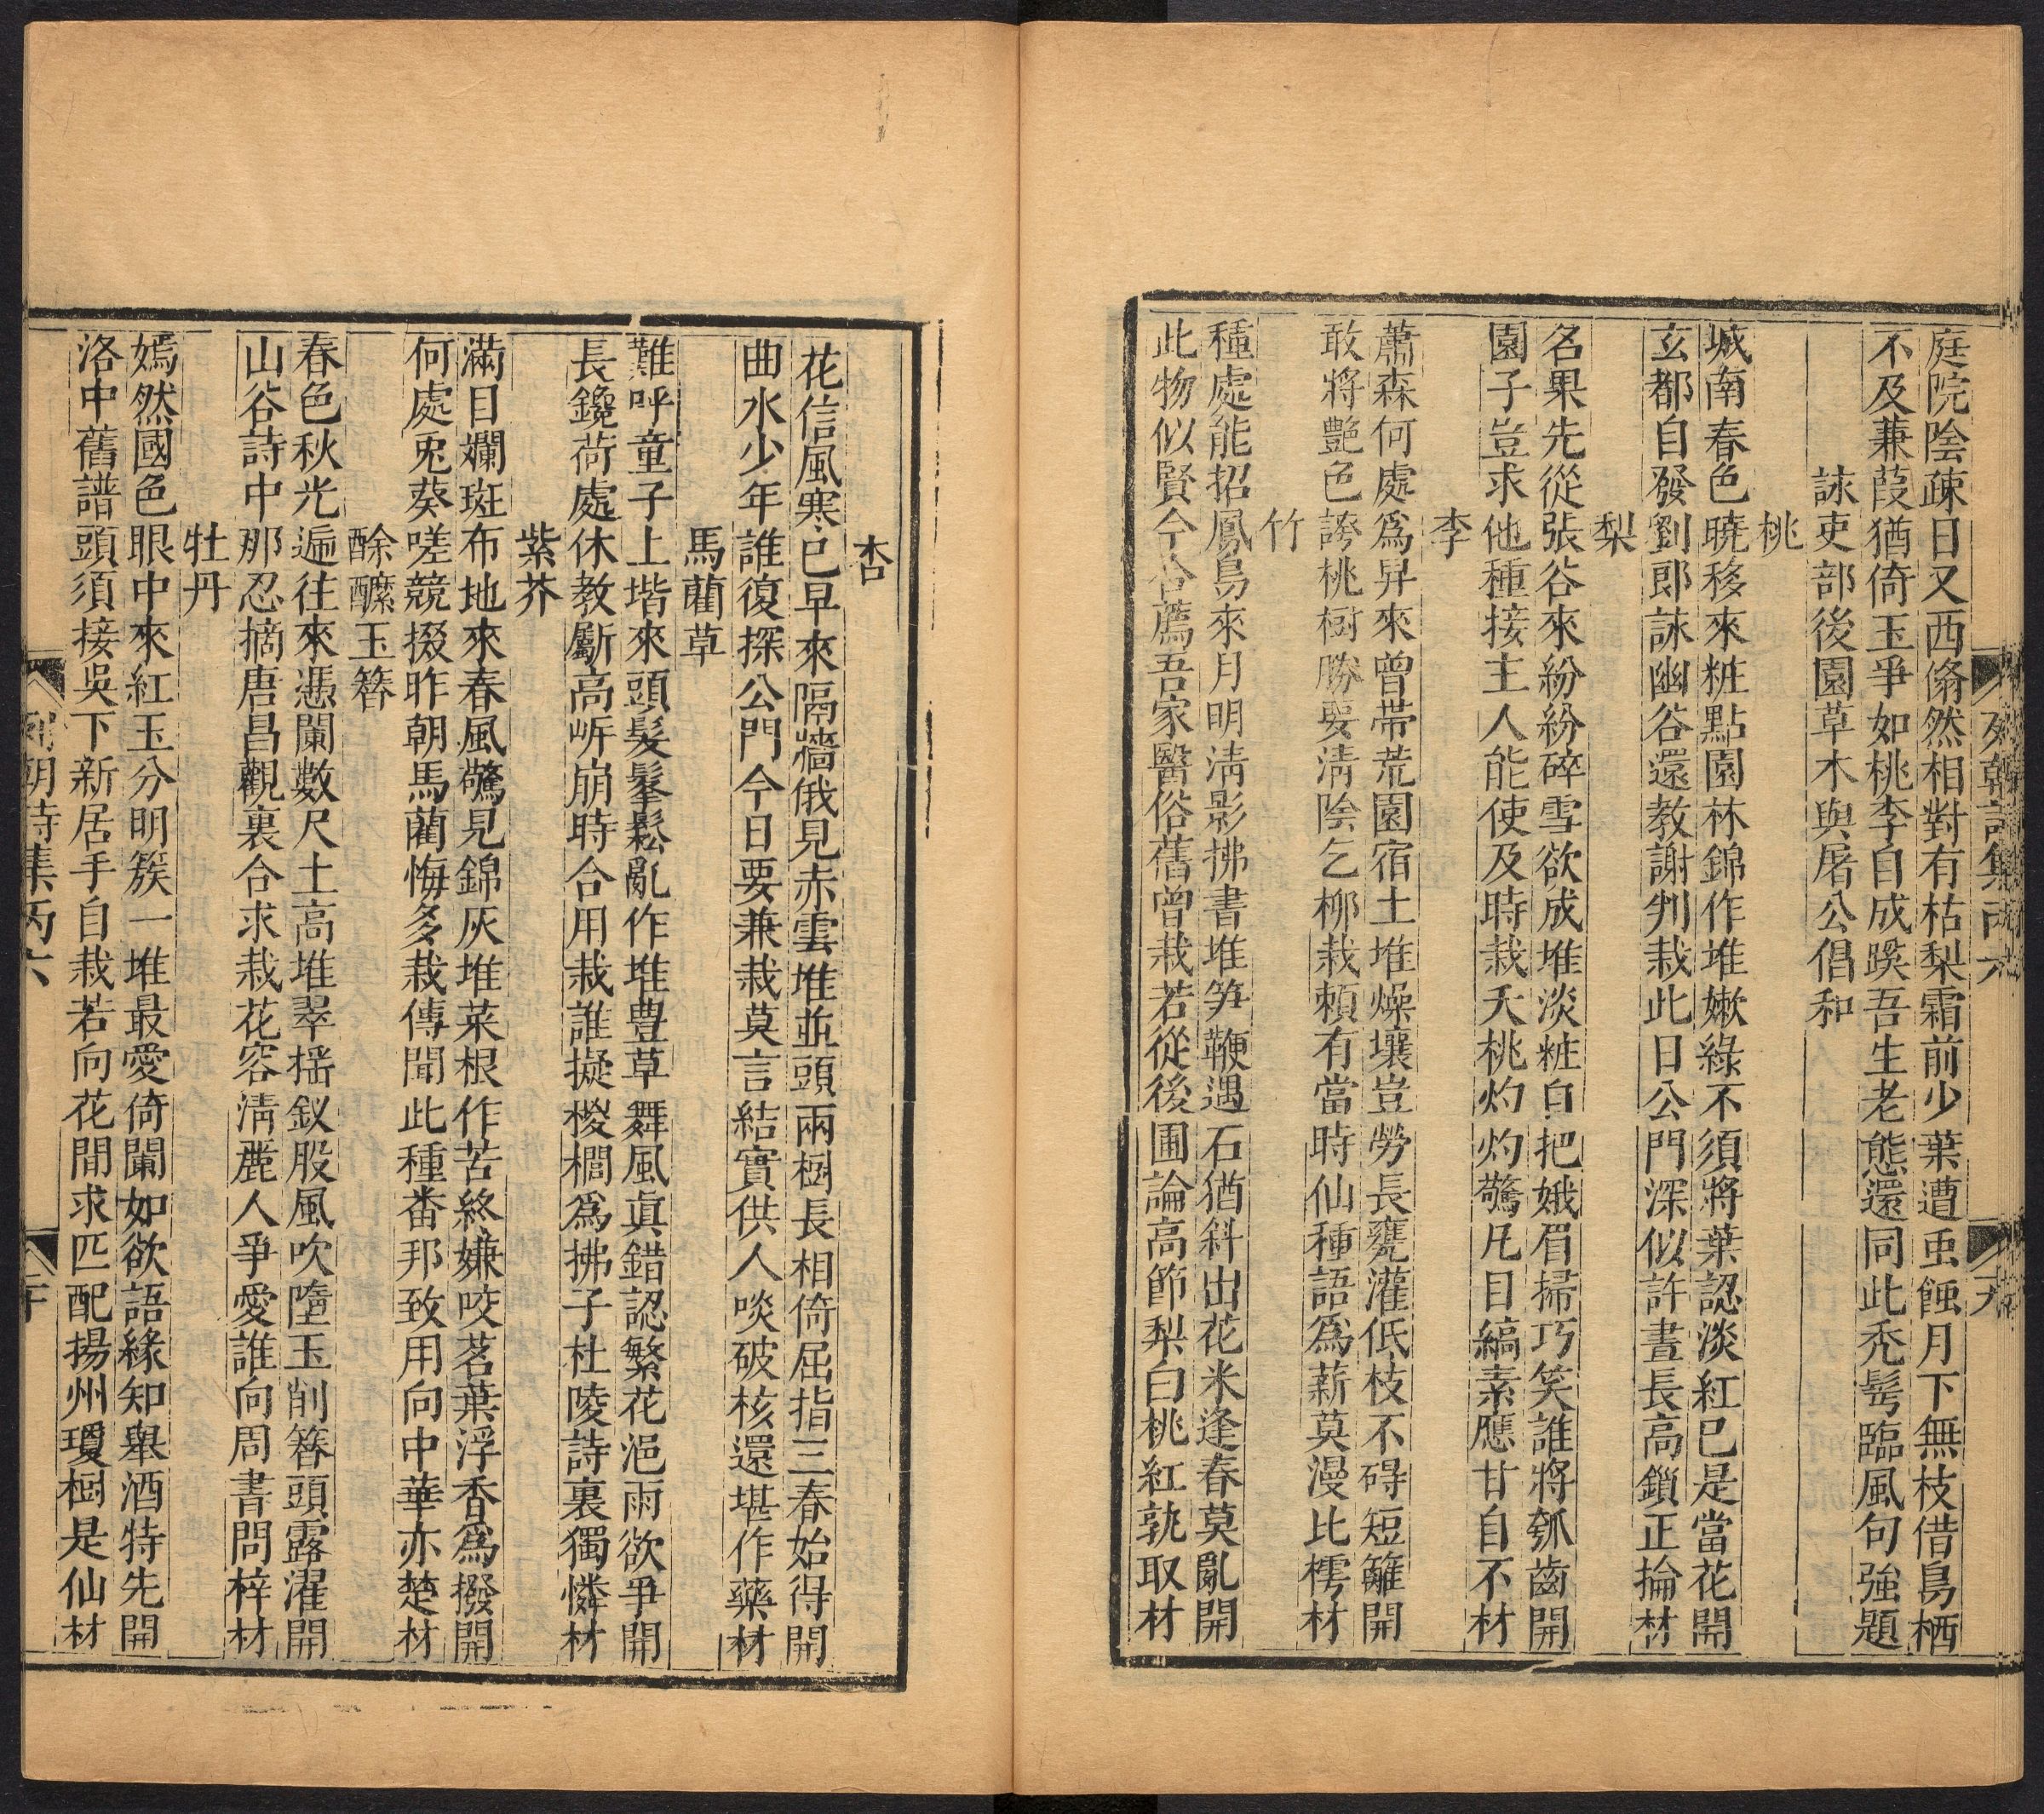 庭院陰疎日又西翛然相對有枯梨霜前少葉遭虫蝕月下無枝借鳥栖
不及蒹葭猶倚玉爭如桃李自成蹊吾生老態還同此禿髩臨風句強題
詠吏部後園草木與屠公倡和
桃
城南春色曉移來粧點園林錦作堆嫩綠不須將葉認淡紅已是當花開
玄都自發劉郎詠幽谷還教謝判栽此日公門深似許晝長高鎖正掄材
梨
名果先從張谷來紛紛碎雪欲成堆淡粧自把娥眉掃巧笑誰將瓠齒開
園子豈求他種接主人能使及時栽夭桃灼灼驚凡目縞素應甘自不材
李
蕭森何處爲昇來曾帶荒園宿土堆燥壤豈勞長甕灌低枝不碍短籬開
敢將艶色誇桃樹勝要淸陰乞柳栽頼有當時仙種語爲薪莫漫比樗材
竹
種處能招鳳鳥來月明淸影拂書堆笋鞭遇石猶斜出花米逢春莫亂開
此物似賢今合薦吾家醫俗舊曾栽若從後圃論高節梨白桃紅孰取材
杏
花信風寒已早來隔墻俄見赤雲堆並頭兩樹長相倚屈指三春始得開
曲水少年誰復探公門今日要兼栽莫言結實供人啖破核還堪作藥材
馬藺草
難呼童子上堦來頭髮髼鬆亂作堆豊草舞風眞錯認繁花浥雨欲爭開
長鑱荷處休教斸高岍崩時合用栽誰擬椶櫚爲拂子杜陵詩裏獨憐材
紫芥
滿目斕斑布地來春風驚見錦灰堆菜根作苦終嫌咬茗葉浮香爲撥開
何處兎葵嗟競掇昨朝馬藺悔多栽傳聞此種畨邦致用向中華亦楚材
酴醿玉簪
春色秋光遍往來凭闌數尺土高堆翠揺釵股風吹墮玉削簪頭露濯開
山谷詩中那忍摘唐昌觀裏合求栽花容淸麗人爭愛誰向周書問梓材
牡丹
嫣然國色眼中來紅玉分明簇一堆最愛倚闌如欲語緣知舉酒特先開
洛中舊譜頭須接吳下新居手自栽若向花間求匹配揚州瓊樹是仙材
朝詩集丙六